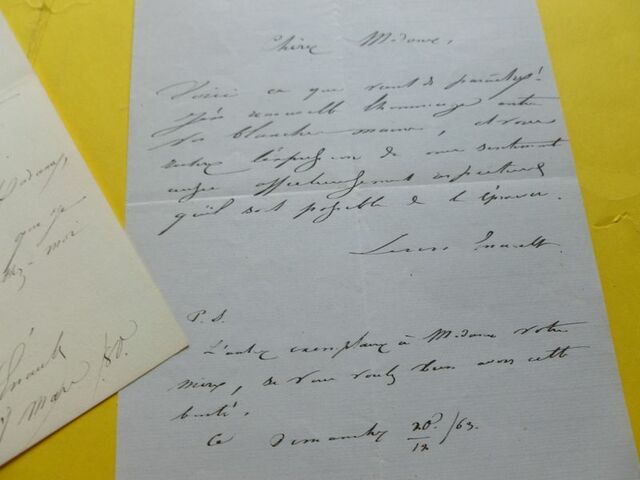 Chère Madame,
Voici ce que vient de paraître!
J'en renouvelle l'hommage entre
vos blanches mains, et vous
l'expression de mes sentiments
aussi affectueusement respectueux
qu'il est possible de l'éprouver.
Louis Enault
P.S.
L'autre exemplaire à Madame votre
mère, si vous voulez bien avoir cette
bonté.
Ce Dimanche 20/12 /63.
Madame,
que je
moi
Enault
Mars /80.